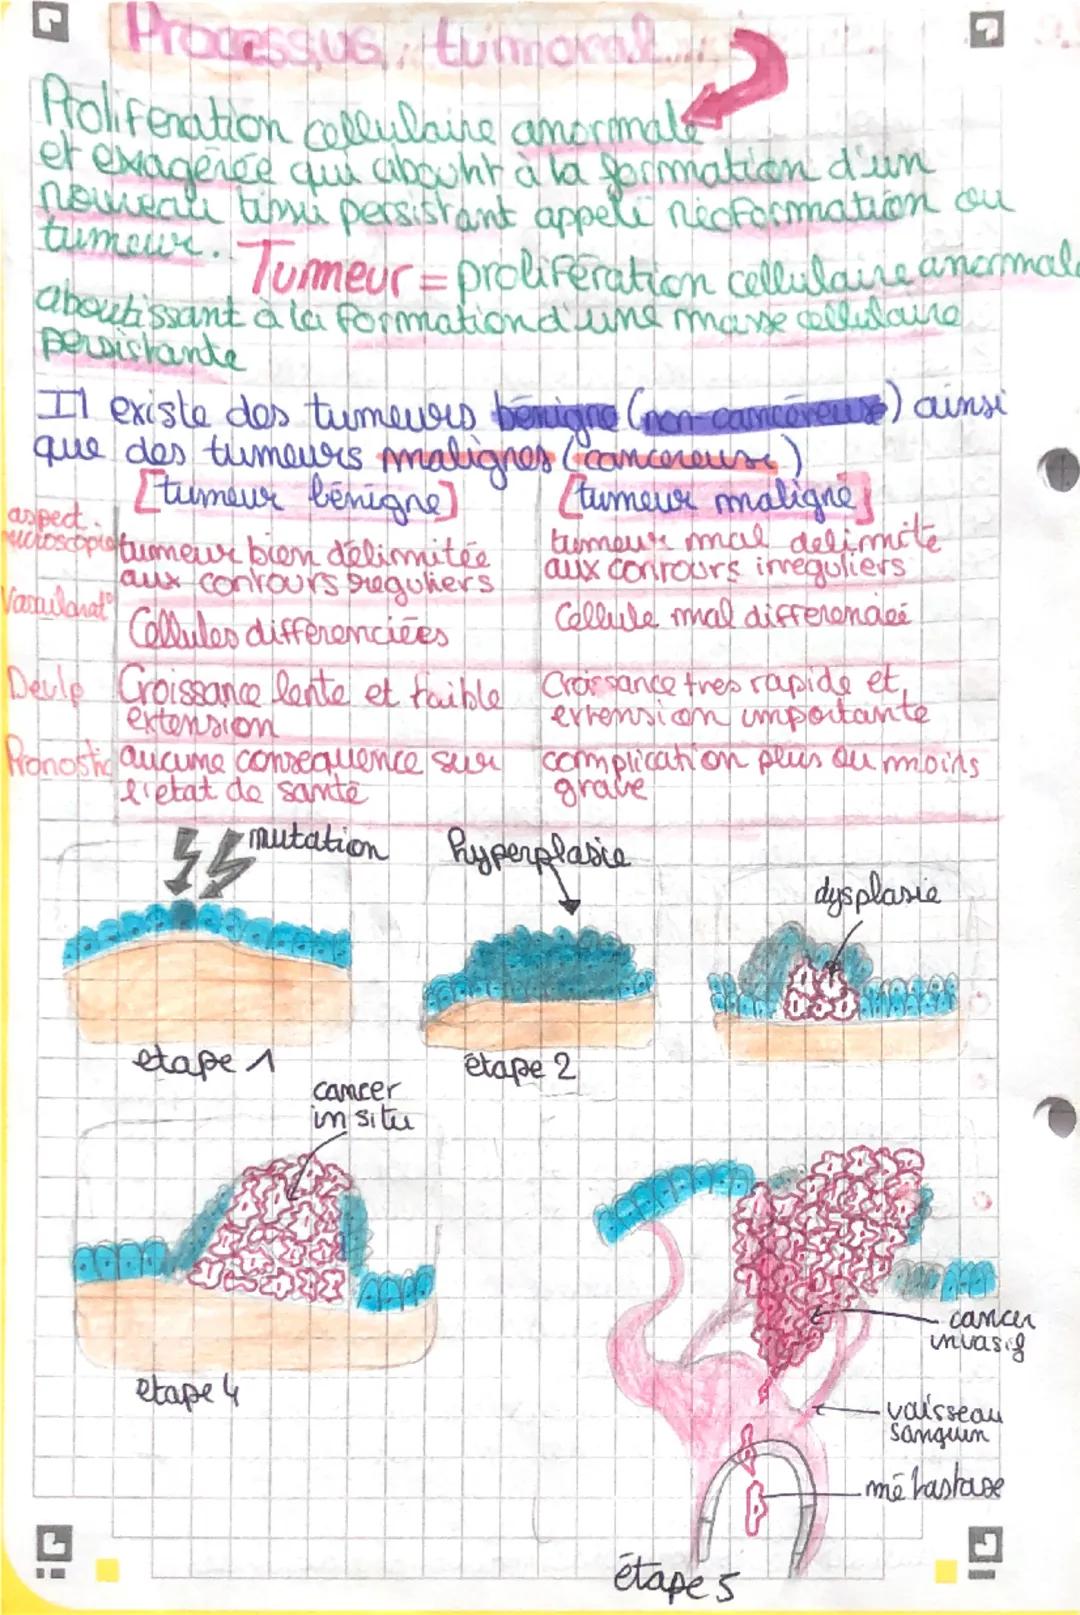 Processus tumoral
Proliferation cellulaire anormale
et exagérée qui aboutit à la formation d'un
nouveau tissu persistant appelé néoformation ou
tumeur.
Tumeur = prolifération cellulaire anormale
aboutissant à la formation d'une masse cellulaire
persistante
Il existe des tumeurs bénigne (non-cancéreuse) ainsi
que des tumeurs malignes (cancereuse)
[tumeur bénigne] [tumeur maligne]
aspect microscopie
tumeur bien délimitée
aux contours reguliers
tumeur mal delimité
aux contours irreguliers
Vascularat°
Cellules differenciées
Cellule mal differenciée
Devlp
Croissance lente et faible
extension
Croissance tres rapide et
extension importante
Pronostic
aucune consequence sur
l'etat de santé
complication plus ou moins
grave
mutation
hyperplasie
dysplasie
etape 1
étape 2
cancer
in situ
etape 4
cancer
invasif
vaisseau
sanguin
métastase
étape 5